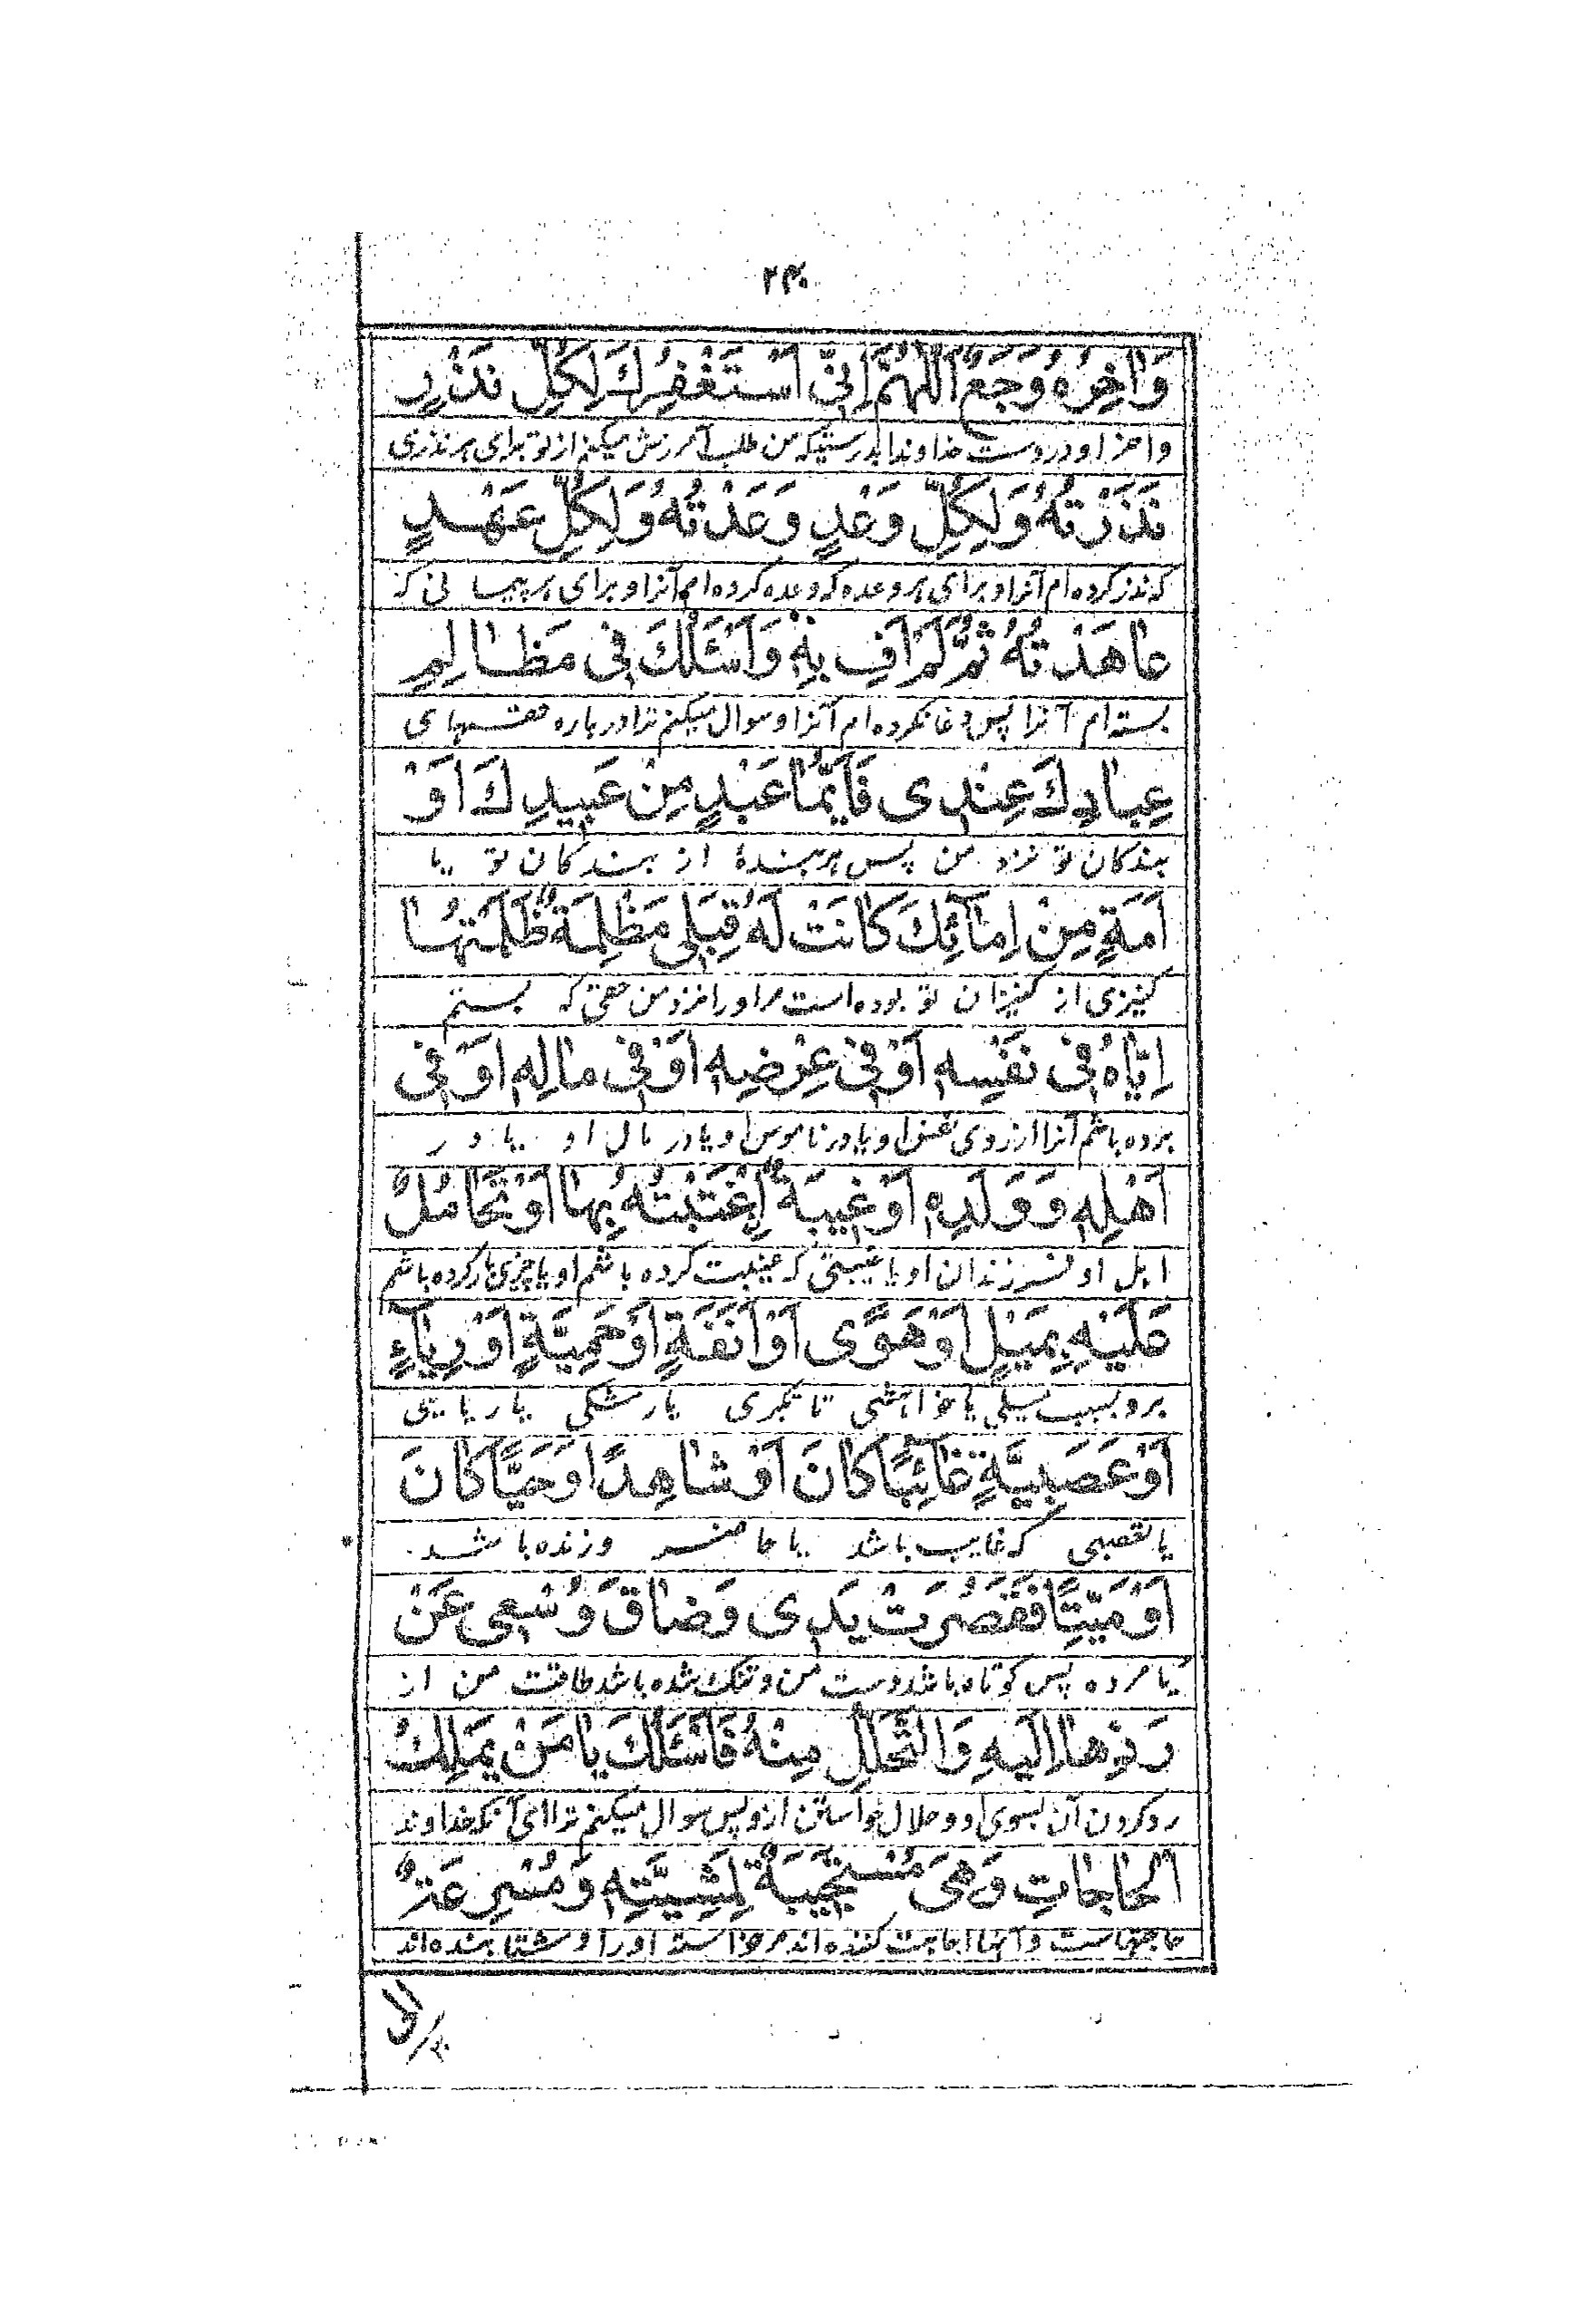 ۲۳۰
وَاٰخِرُهُ وَجَعٌ اَللّٰهُمَّ اِنّي اَسْتَغْفِرُكَ لِكُلِّ نَذْرٍ
واخر او درد است خداوندا بدرستیکه من طلب آمرزش میکنم از تو برای هر نذری
نَذَرْتُهُ وَلِكُلِّ وَعْدٍ وَعَدْتُهُ وَلِكُلِّ عَهْدٍ
که نذر کرده ام آنرا و برای هر وعده که وعده کرده ام آنرا و برای هر پیمانی که
عٰاهَدْتُهُ ثُمَّ لَمْ اَفِ بِهٖ وَاَسْئَلُكَ فِي مَظٰالِمِ
بسته ام آنرا پس وفا نکرده ام آنرا و سوال میکنم ترا در باره حقهای
عِبٰادِكَ عِنْدِى فَاَيُّمٰا عَبْدٍ مِنْ عَبِيدِكَ اَوْ
بندکان تو نزد من پس هر بندهٔ از بندکان تو یا
اَمَةٍ مِنْ اِمٰآئِكَ كٰانَتْ لَهُ قِبَلِي مَظْلِمَةٌ ظَلَمْتُهٰا
کنیزی از کنیزان تو بوده است مر او را نزد من حقی که ستم
اِيّٰاهُ فِي نَفْسِهٖ اَوْ فِي عِرْضِهٖ اَوْ فِي مٰالِهٖ اَوْ فِي
برده باشم آنرا از روی نفس او یا در ناموس او یا در مال او یا در
اَهْلِهٖ وَوَلَدِهٖ اَوْ غِيبَةٌ اِغْتَبْتُهُ بِهٰا اَوْ تَحٰامُلٌ
اهل او و فرزندان او یا غیبتی که غیبت کرده باشم او یا چیزی بار کرده باشم
عَلَيْهِ بِمَيْلٍ اَوْ هَوًى اَوْ اَنَفَةٍ اَوْ حَمِيَّةٍ اَوْ رِيٰآءٍ
بر و بسبب میلی یا خواهشی تا تکبری یا رشکی یا ریایی
اَوْ عَصَبِيَّةٍ غٰائِبًا كٰانَ اَوْ شٰاهِدًا اَوْ حَيًّا كٰانَ
یا تعصبی که غایب باشد یا حاضر و زنده باشد
اَوْ مَيِّتًا فَقَصُرَتْ يَدِى وَضٰاقَ وُسْعِي عَنْ
یا مرده پس کوتاه باشد دست من و تنک شده باشد طاقت من از
رَدِّهٰا اِلَيْهِ وَالتَّحَلُّلِ مِنْهُ فَاَسْئَلُكَ يٰا مَنْ يَمْلِكُ
رد کردن آن بسوی او و حلال خواستن از و پس سوال میکنم ترا ای آنکه خداوند
الْحٰاجٰاتِ وَهِيَ مُسْتَجِيبَةٌ لِمَشِيَّتِهٖ وَمُسْرِعَةٌ
حاجتهاست و آنها اجابت کننده اند مر خواسته او را و شتابنده اند
اِلٰى